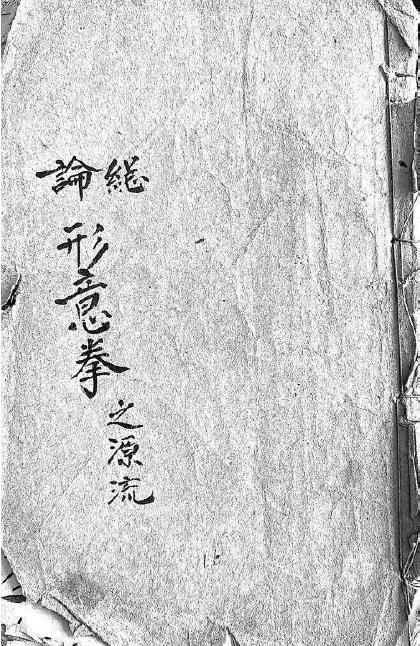 總論
形意拳
之源流